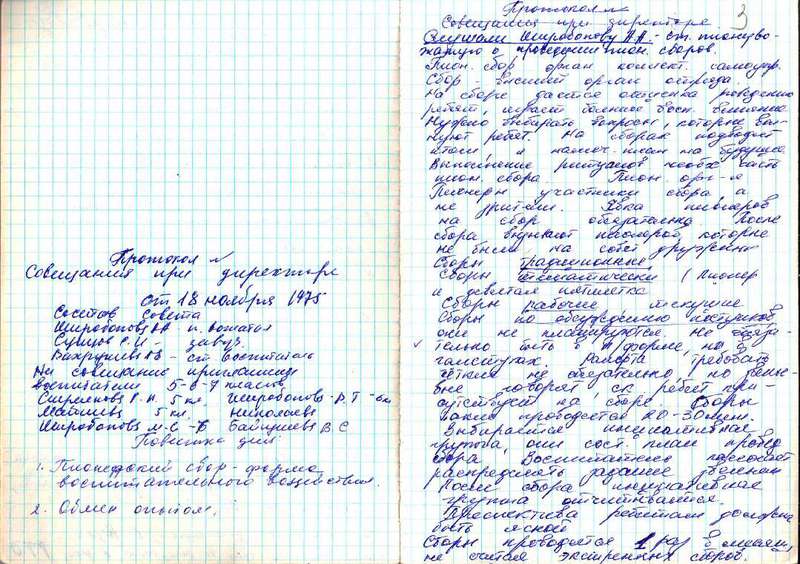 Протокол №
Совещания при директоре
От 18 ноября 1975
Состав Совета
Широбокова А.А. п. вожатая
завуч
Вахрушева - ст. воспитатель
На совещание приглашены
воспитатели 5-6-7 классов
5 кл. Широбокова Р Т - 6
5 кл. Николаева
Широбокова М.С - В С
Повестка дня
1. Пионерский сбор - форма
воспитательного воздействия.
2. Обмен опытом.
3
Протокол №
Совещания при директоре
Слушали Широбокову А.А. - ст. пионерво-
жатую о проведении пион. сборов.
Пион. сбор орган коллект. самоупр.
Сбор - высший орган отряда.
На сборе дается оценка поведению
ребят, играет большое восп.
Нужно выбирать вопросы, которые вол-
нуют ребят. На сборах подводят
итоги и намеч. план на будущее
Выполнение ритуалов необх часть
пион. сбора Пион. орг-я
Пионеры участники сбора а
не зрители. Явка пионеров
на сбор обязательна После
сбора которые
не были на совет дружины
Сборы традиционные
Сборы тематически (Пионер
и девятая пятилетка
Сборы рабочие текущие
Сборы по обсуждению поступков
они не планируются, не обяза-
тельно быть в п/форме, но в
галстуках, рапорта требовать
четкий не обязательно, но
говорят, ск. ребят при-
сутствует на сборе. Сборы
такие проводятся 20-30 мин.
Выбирается инициативная
группа, они сост. план провед
сбора Воспитателю
распределить задание звеньям
После сбора инициативная
группа отчитывается.
Перспектива ребятам должна
быть ясной
Сборы проводятся 1 раз в месяц,
не считая экстренных сборов.